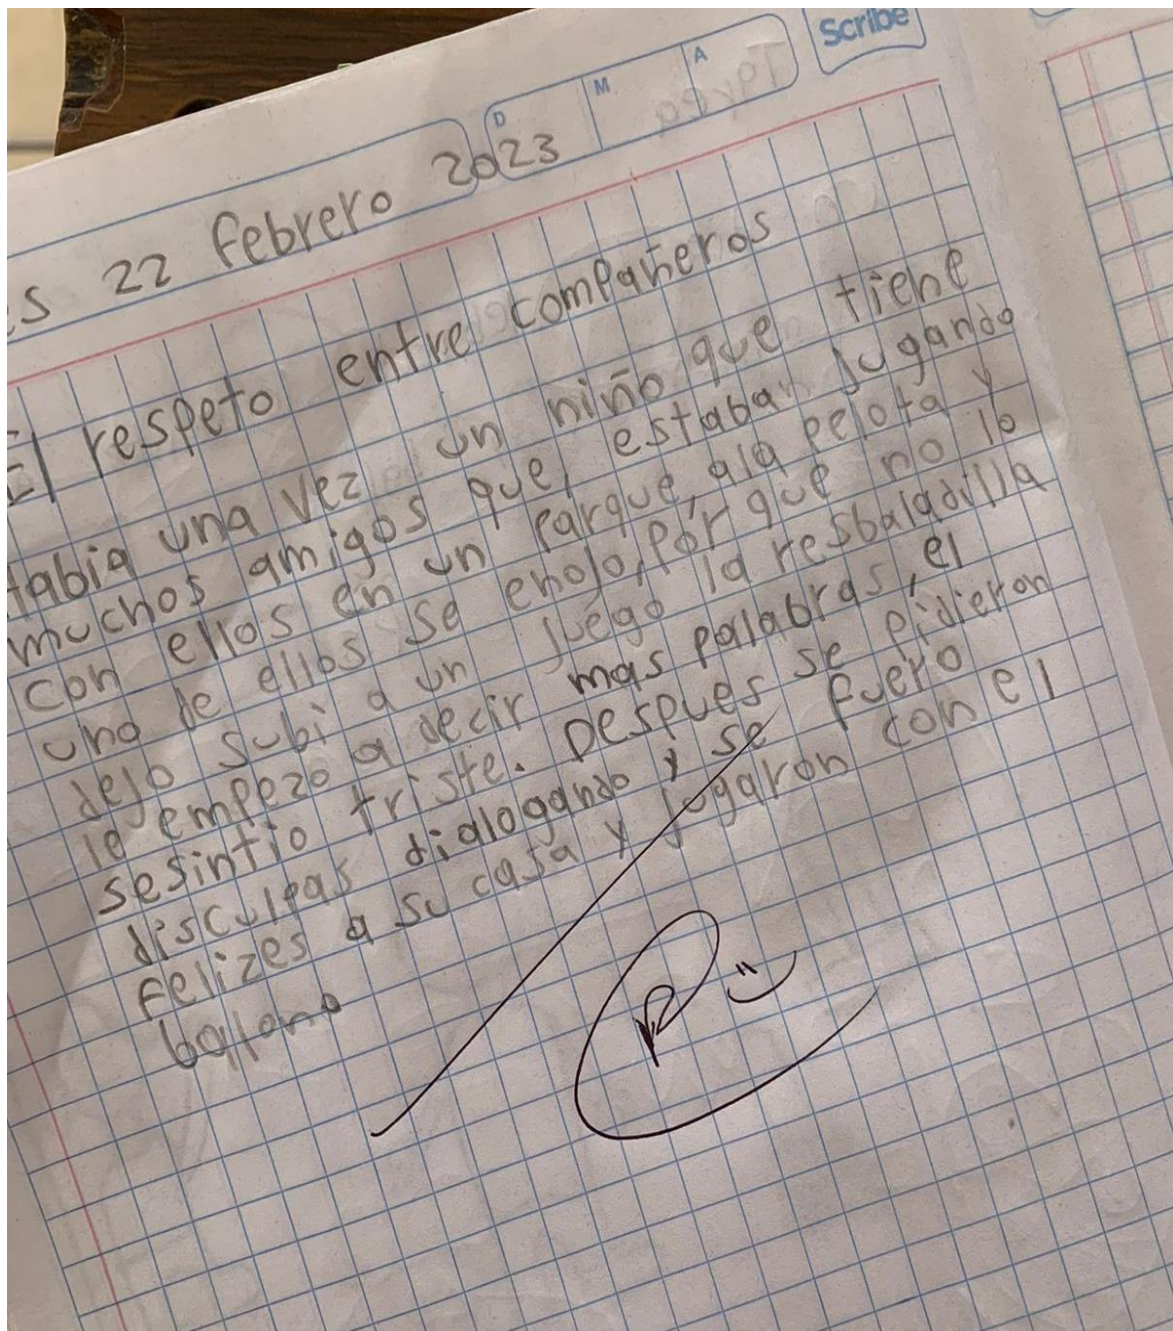 Scribe
D M A
s 22 febrero 2023
El respeto entre compañeros
Habia una vez un niño que tiene
muchos amigos que, estaban jugando
con ellos en un parque, ala pelota y
uno de ellos se enojo, por que no lo
dejo subi a un juego la resbaladilla
le empezo a decir mas palabras, el
sesintio triste. Despues se pidieron
disculpas dialogando y se fuero
felizes a su casa y jugaron con el
balon